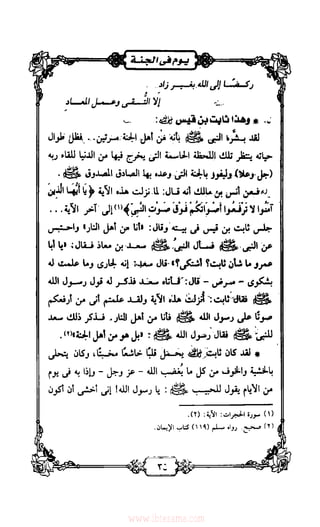 يوم في الجنة
ركضًا إلى الله بغير زاد
إلا التُّقى وعمل المعاد
* وهذا ثابت بن قيس ﷺ:
لقد بشَّره النبي ﷺ بأنه من أهل الجنة مرتين.. فظل طوال
حياته ينتظر تلك اللحظة الحاسمة التي يخرج فيها من الدنيا للقاء ربه
(جل وعلا) وليفوز بالجنة التي وعده بها الصادق المصدوق ﷺ.
* فعن أنس بن مالك أنه قال: لما نزلت هذه الآية ﴿يَا أَيُّهَا الَّذِينَ
آمَنُوا لا تَرْفَعُوا أَصْوَاتَكُمْ فَوْقَ صَوْتِ النَّبِيِّ﴾(١) إلى آخر الآية...
جلس ثابت بن قيس في بيته وقال: «أنا من أهل النار» واحتبس
عن النبي ﷺ فسأل النبي ﷺ سعد بن معاذ فقال: «يا أبا
عمرو ما شأن ثابت؟ أشتكى؟» قال سعد: إنه لجاري وما علمت له
بشكوى - مرض - قال: فأتاه سعد فذكر له قول رسول الله
ﷺ فقال ثابت: أُنزلت هذه الآية ولقد علمتم أني من أرفعكم
صوتًا على رسول الله ﷺ فأنا من أهل النار. فذكر ذلك سعد
للنبي ﷺ فقال رسول الله ﷺ: «بل هو من أهل الجنة»(٢).
* لقد كان ثابت يحمل قلبًا خاشعًا مخبتًا، وكان يتحلى
بالخشية والخوف من كل ما يُغضب الله - عز وجل - وإذا به في يوم
من الأيام يقول للحبيب ﷺ: يا رسول الله! إني أخشى أن أكون
(١) سورة الحجرات: الآية: (٢).
(٢) صحيح: رواه مسلم (١١٩) كتاب الإيمان.
www.ibtesama.com